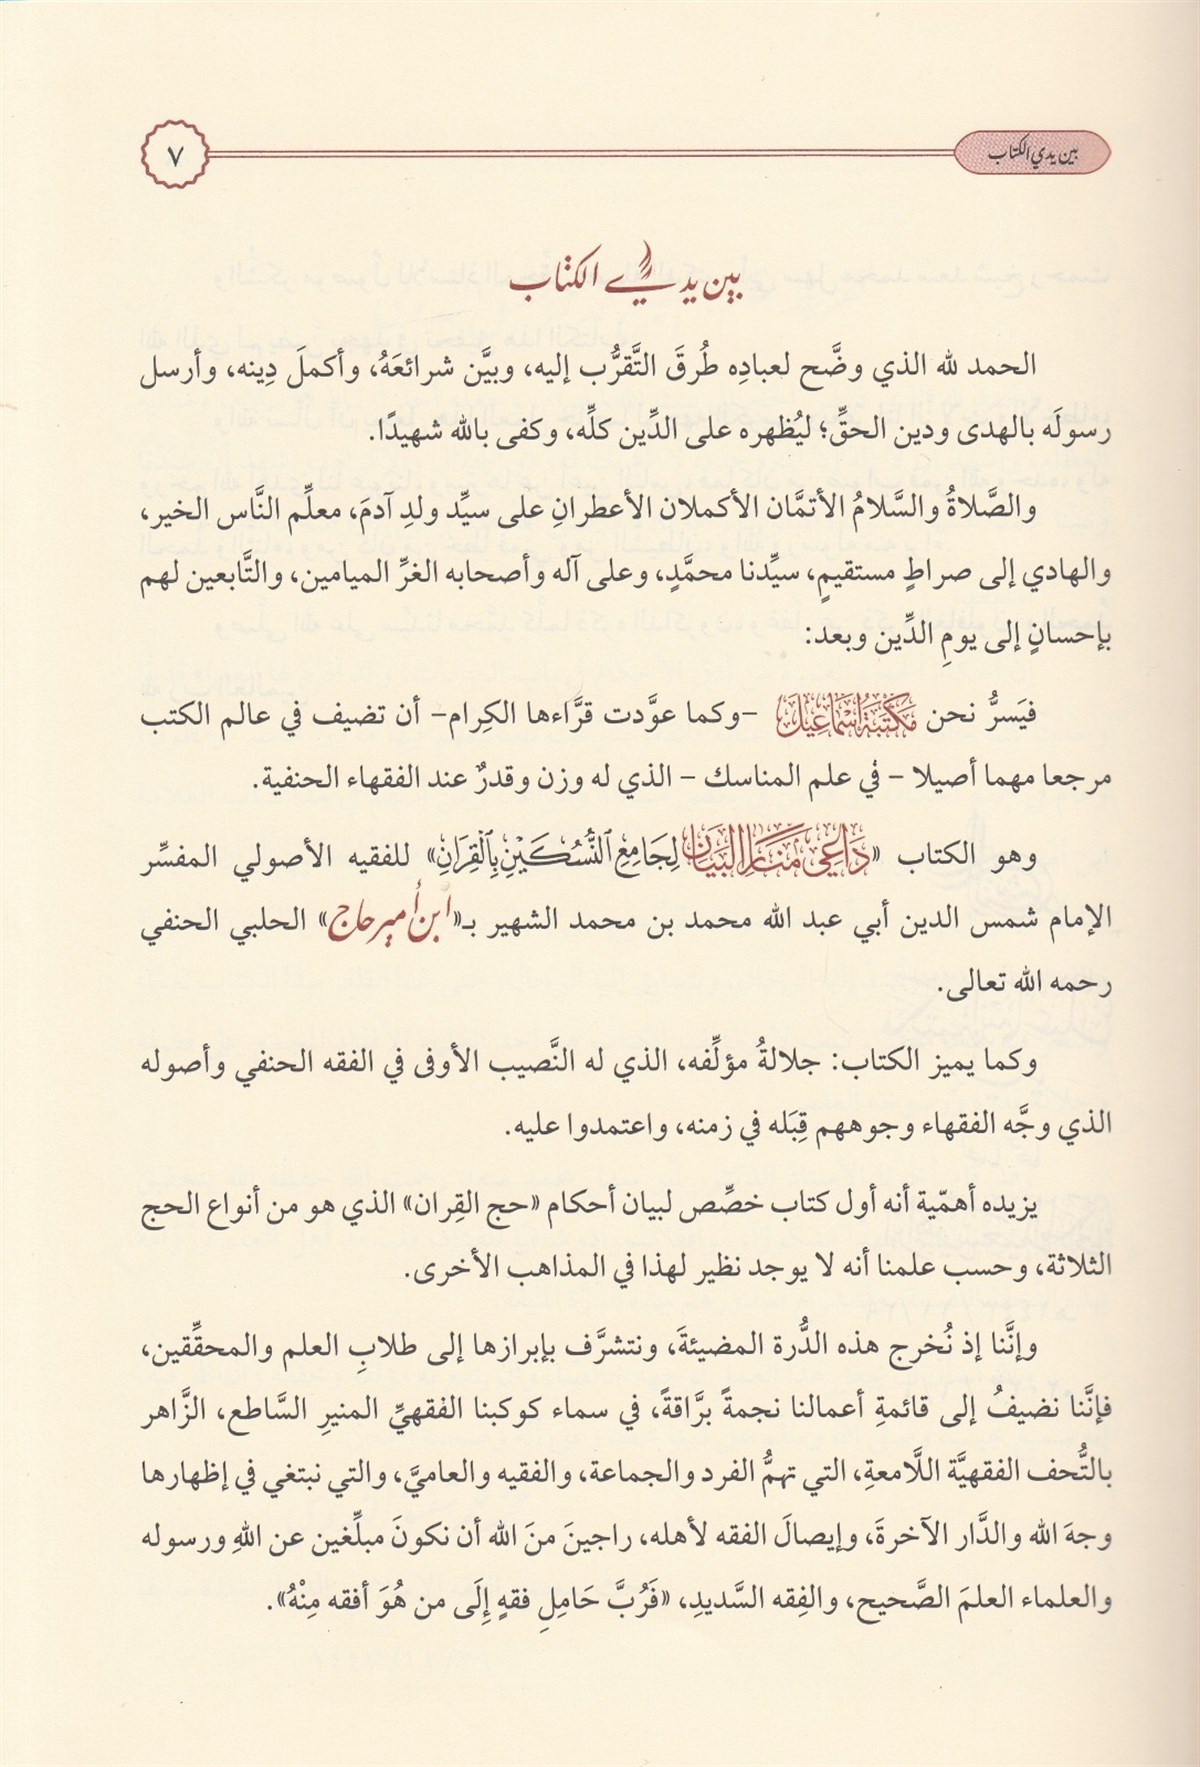 بين يدي الكتاب
٧
بين يدي الكتاب
الحمد لله الذي وضَّح لعبادِه طُرقَ التَّقرُّب إليه، وبيَّن شرائعَهُ، وأكملَ دِينه، وأرسل
رسولَه بالهدى ودين الحقِّ؛ ليُظهره على الدِّين كلِّه، وكفى بالله شهيدًا.
والصَّلاةُ والسَّلامُ الأتمَّان الأكملان الأعطرانِ على سيِّد ولدِ آدمَ، معلِّم النَّاس الخير،
والهادي إلى صراطٍ مستقيمٍ، سيِّدنا محمَّدٍ، وعلى آله وأصحابه الغرِّ الميامين، والتَّابعين لهم
بإحسانٍ إلى يومِ الدِّين وبعد:
فيَسرُّ نحن مَكْتَبَةُ اسْمَاعِيلَ -وكما عوَّدت قرَّاءها الكِرام- أن تضيف في عالم الكتب
مرجعا مهما أصيلا - في علم المناسك - الذي له وزن وقدرٌ عند الفقهاء الحنفية.
وهو الكتاب «دَاعِي مَنَارِ البَيَانِ لِجَامِعِ النُّسُكَيْنِ بِالْقِرَانِ» للفقيه الأصولي المفسِّر
الإمام شمس الدين أبي عبد الله محمد بن محمد الشهير بـ«ابن أمير حاج» الحلبي الحنفي
رحمه الله تعالى.
وكما يميز الكتاب: جلالةُ مؤلِّفه، الذي له النَّصيب الأوفى في الفقه الحنفي وأصوله
الذي وجَّه الفقهاء وجوههم قِبَله في زمنه، واعتمدوا عليه.
يزيده أهمّية أنه أول كتاب خصِّص لبيان أحكام «حج القِران» الذي هو من أنواع الحج
الثلاثة، وحسب علمنا أنه لا يوجد نظير لهذا في المذاهب الأخرى.
وإنَّنا إذ نُخرج هذه الدُّرة المضيئةَ، ونتشرَّف بإبرازها إلى طلابِ العلم والمحقِّقين،
فإنَّنا نضيفُ إلى قائمةِ أعمالنا نجمةً برَّاقةً، في سماء كوكبنا الفقهيِّ المنيرِ السَّاطع، الزَّاهر
بالتُّحف الفقهيَّة اللَّامعةِ، التي تهمُّ الفرد والجماعة، والفقيه والعاميَّ، والتي نبتغي في إظهارها
وجهَ الله والدَّار الآخرةَ، وإيصالَ الفقه لأهله، راجينَ منَ الله أن نكونَ مبلِّغين عن اللهِ ورسوله
والعلماء العلمَ الصَّحيح، والفِقه السَّديدِ، «فَرُبَّ حَامِلِ فقهٍ إِلَى من هُوَ أفقه مِنْهُ».